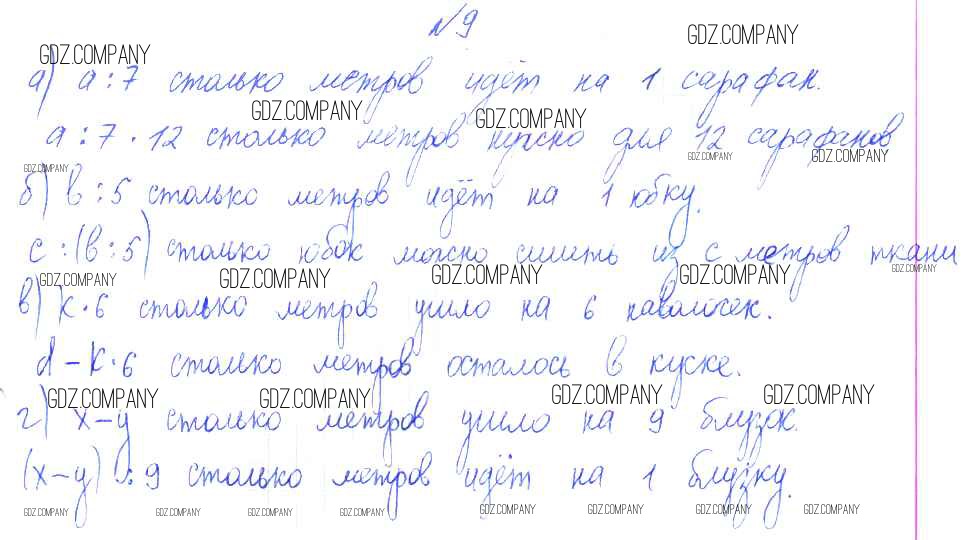 №9
GDZ.COMPANY
GDZ.COMPANY
а) a : 7 столько метров идёт на 1 сарафан.
GDZ.COMPANY GDZ.COMPANY
a : 7 · 12 столько метров нужно для 12 сарафанов
GDZ.COMPANY GDZ.COMPANY
GDZ.COMPANY
б) b : 5 столько метров идёт на 1 юбку.
c : (b : 5) столько юбок можно сшить из c метров ткани
GDZ.COMPANY GDZ.COMPANY GDZ.COMPANY GDZ.COMPANY GDZ.COMPANY
в) k · 6 столько метров ушло на 6 наволочек.
d - k · 6 столько метров осталось в куске.
GDZ.COMPANY GDZ.COMPANY GDZ.COMPANY GDZ.COMPANY
г) x - y столько метров ушло на 9 блузок.
(x - y) : 9 столько метров идёт на 1 блузку.
GDZ.COMPANY GDZ.COMPANY GDZ.COMPANY GDZ.COMPANY GDZ.COMPANY GDZ.COMPANY GDZ.COMPANY GDZ.COMPANY